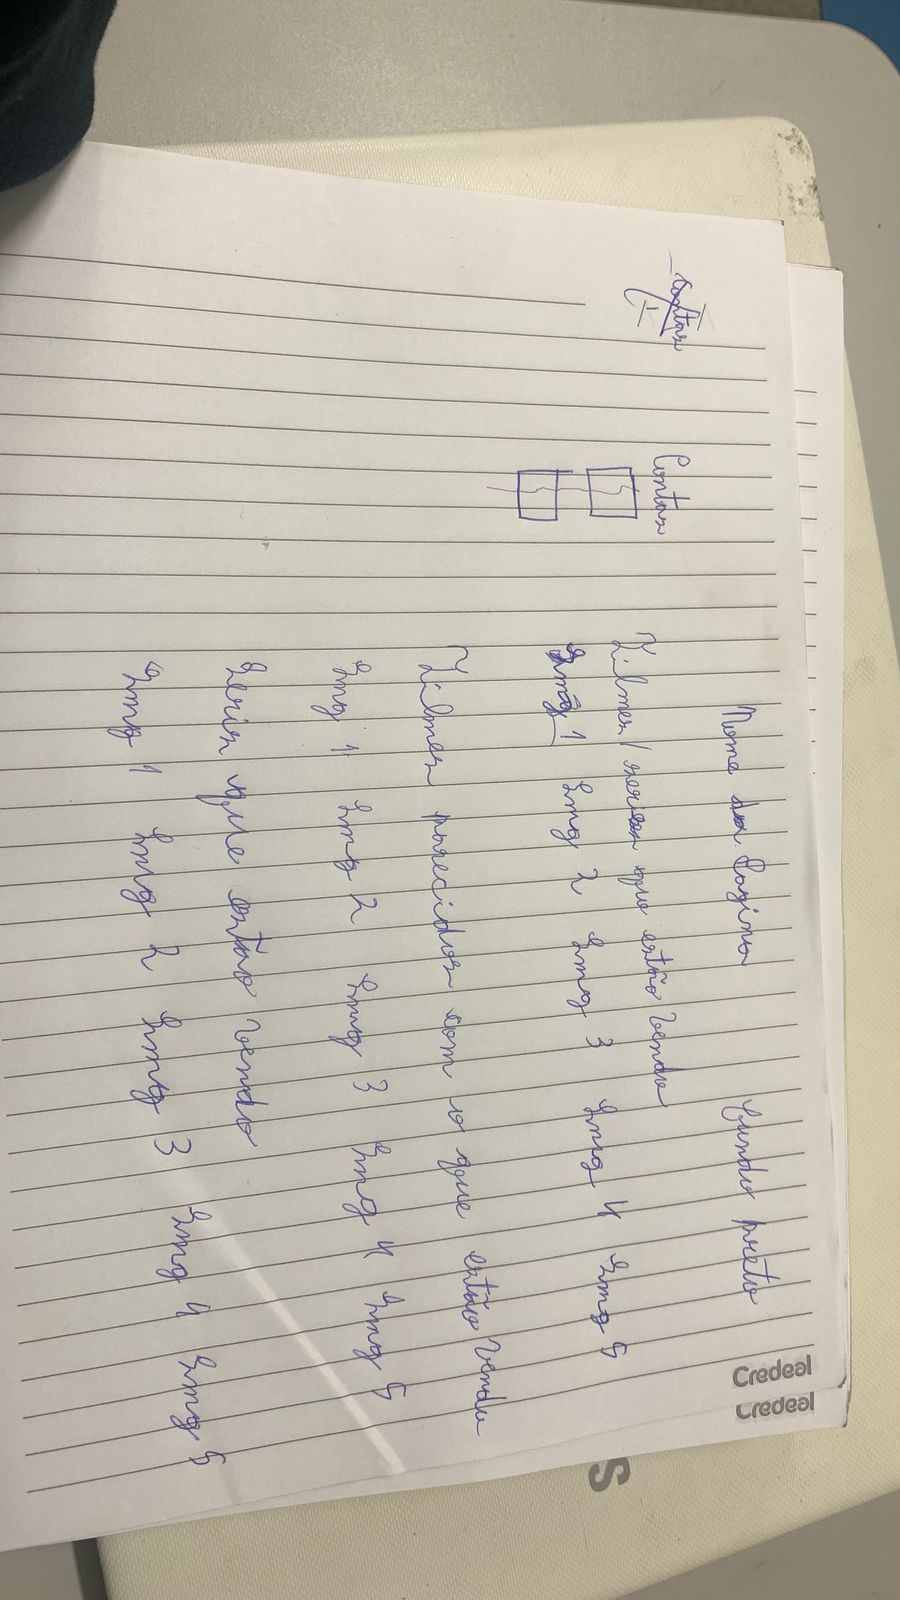 Nome da Pagina Fundo preto
Contas
Filmes/series que estão vendo
Img 1 Img 2 Img 3 Img 4 Img 5
Filmes parecidos com o que estão vendo
Img 1 Img 2 Img 3 Img 4 Img 5
Series que estão vendo
Img 1 Img 2 Img 3 Img 4 Img 5
Credeal
Credeal
S